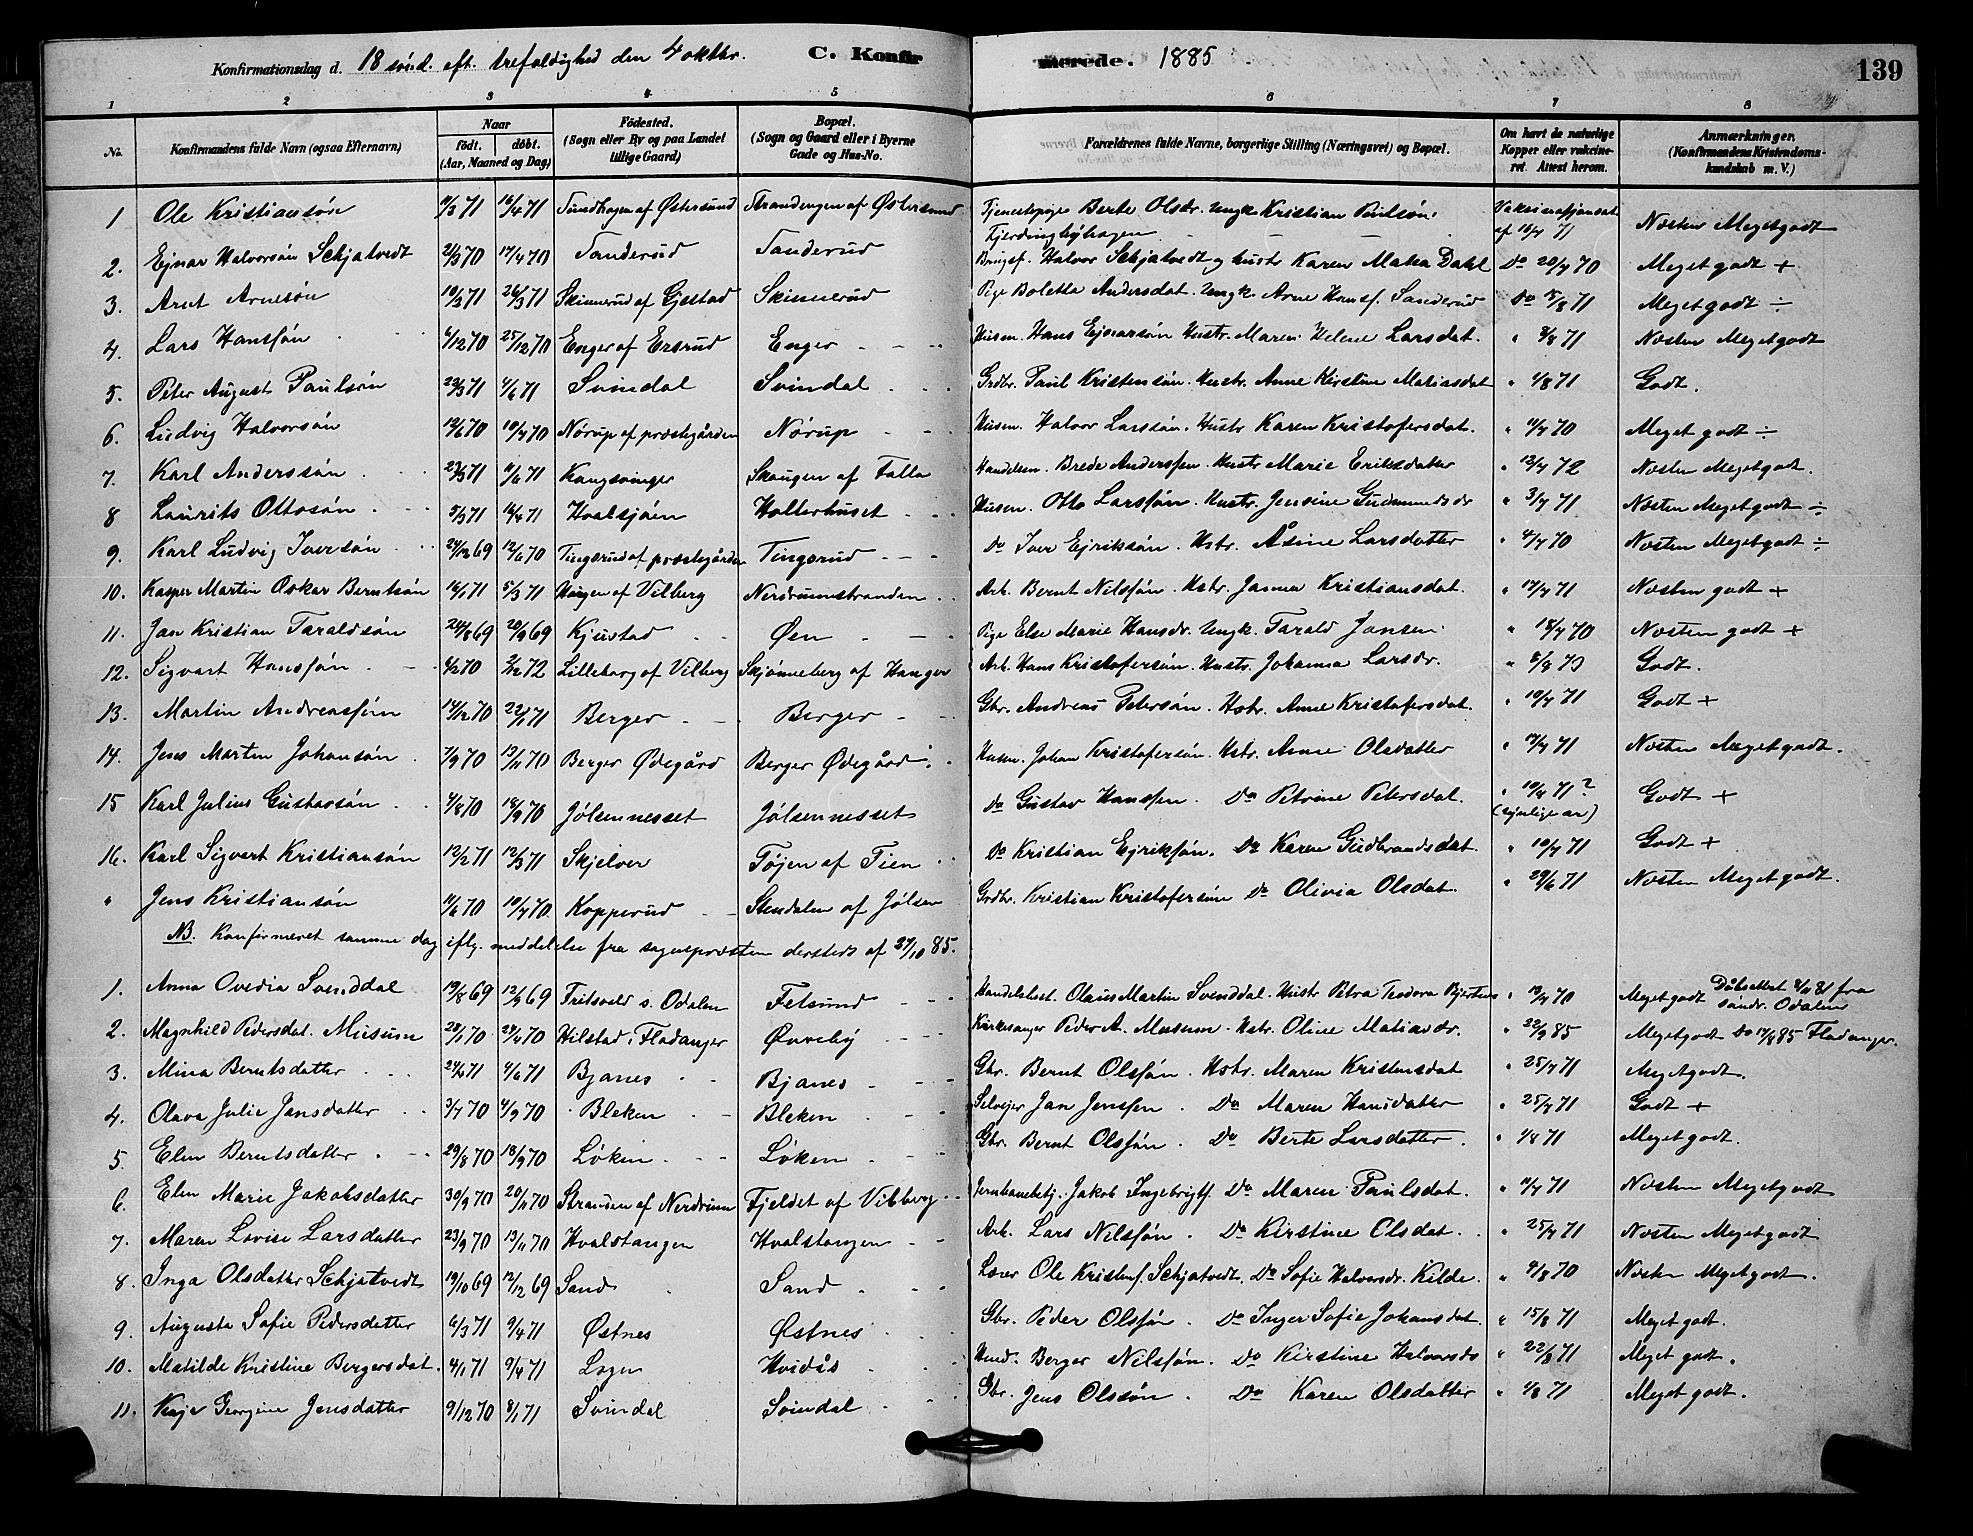 Konfirmationsdag d. 18 sönd. eft. trefoldighed den 4 oktbr. C. Konfirmerede. 1885 139
1 2 3 4 5 6 7 8
No. Konfirmandens fulde Navn (ogsaa Efternavn) Naar födt. döbt. (Aar, Maaned og Dag) Födested. (Sogn eller By og paa Landet tillige Gaard) Bopæl. (Sogn og Gaard eller i Byerne Gade og Hus-No. Forældrenes fulde Navne, borgerlige Stilling (Næringsvei) og Bopæl. Om havt de naturlige Kopper eller vakcineret. Attest herom. Anmærkninger. (Konfirmandens Kristendomskundskab m. V.)
1 Ole Kristiansön 11/3 71 16/4 71 Sundhagen af Östersund Strandengen af Östersund Tjenestepige Berte Olsdr. Ungk. Kristian Paulsön. Fjerdingbyhagen Næsten Megetgodt
2. Ejnar Halvorsön Schjatvedt 2/3 70 17/4 70 Tanderud Tanderud Brugsf. Halvor Schjatvedt og hustr Karen Matea Dahl Do 20/7 70 Meget godt +
3. Arnt Arnesön 10/3 71 26/3 71 Skinnerud af Gjestad Skinnerud Pige Boletta Andersdat. Ungk. Arne Hansf. Sanderud Do 15/8 71 Megetgodt ÷
4. Lars Hansfön 6/12 70 25/12 70 Enger af Ersrud Enger Husm. Hans Ejnarsön Hustr. Maren Helene Larsdat. " 8/8 71 Næsten Megetgodt
5. Peter August Paulsön 29/3 71 4/6 71 Svindal Svindal Grdbr. Paul Kristensön. Hustr. Anne Kirstine Matiasdat " 1/8 71 Godt.
6. Ludvig Halvorsön 12/6 70 10/7 70 Nörup af præstegården Nörup Husm. Halvor Larssön. Hustr Karen Kristofersdat. " 4/7 70 Meget godt ÷
7. Karl Anderssön 23/3 71 11/6 71 Kongsvinger Skougen af Falla Handelsm. Brede Andersfen. Hustr Marie Eriksdatter " 12/7 72 Næsten Megetgodt.
8 Laurits Ottosön 5/3 71 16/4 71 Hvalsjöen Holterhuset Husm. Otto Larsfön. Hustr. Jensine Gudmundsdr " 3/7 71 Næsten Megetgodt ÷
9. Karl Ludvig Iversön 24/12 69 12/6 70 Tingsrud af præstegården Tingsrud Do Iver Ejriksön. Hstr. Åsine Larsdatter " 4/7 70 Næsten Megetgodt ÷
10. Kasper Martin Oskar Berntsön 16/1 71 5/3 71 Haugen af Vilberg Nerdrumstranden Arb. Bernt Nilsfön. Hstr. Janna Kristiansdat. " 17/7 71 Næsten godt +
11. Jan Kristian Taraldsön 24/8 69 20/9 69 Kjustad Øen Pige Else Marie Hansdr. Ungk. Tarald Jansen. " 18/7 70 Næsten godt +
12. Sigvart Hansfön 4/2 70 2/12 72 Lilleborg af Vilberg Skjönneberg af Hanger Arb. Hans Kristofersön. Hustr. Johanna Larsdr. " 8/8 73 Godt.
13. Martin Andreasfön 14/12 70 22/1 71 Berger Berger Gbr. Andreas Petersön. Hstr. Anne Kristofersdat. " 10/7 71 Godt +
14. Jens Morten Johansön 7/9 70 13/11 70 Berger Ødegård Berger Ødegård Husm. Johan Kristofersön. Hstr. Anne Olsdatter " 17/7 71 Næsten Megetgodt.
15 Karl Julius Gustavsön 4/8 70 18/9 70 Jölsennesset Jölsennesset Do Gustav Hansfen. Do Petrine Petersdat. " 10/8 71? (synlige ar) Godt +
16. Karl Sigvart Kristiansön 12/2 71 12/3 71 Skjelver Töjen af Tien Do Kristian Ejriksfön. Do Karen Gudbrandsdat. " 10/7 71 Godt +
" Jens Kristiansön 11/6 70 10/7 70 Kopperud Stendalen af Jölsen Grdbr. Kristian Kristofersön Do Olivia Olsdat. " 29/6 71 Næsten Megetgodt.
NB. Konfirmeret samme dag iflg. meddelelse fra sognepræsten dersteds af 27/10 85.
1. Anna Ovedia Svenddal 19/8 69 12/9 69 Fritsvold s. Odalen Fetsund Handelsbet. Olaus Martin Svenddal. Hustr Petra Teodora " 19/7 70 Megetgodt Dåbsattest 8/11 81 fra söndr. Odalen
2. Magnhild Pedersdat. Miusum 28/1 70 24/4 70 Hilstad i Fladanger Övreby Kirkesanger Peder A. Musum. Hstr. Oline Matiasdr. " 22/9 85 Megetgodt Do 17/8 85 Fladanger.
3. Mina Berntsdatter 24/2 71 4/6 71 Bjanes Bjanes Gbr. Bernt Olsfön. Hstr. Maren Kristensdat " 25/7 71 Megetgodt.
4. Olava Julie Jansdatter 3/7 70 4/9 70 Bleken Bleken Selvejer Jan Jensfen. Do Maren Hansdatter " 25/7 71 Godt +
5. Elen Berntsdatter 29/8 70 18/9 70 Löken Löken Gbr. Bernt Olsfön. Do Berte Larsdatter. " 1/8 71 Meget godt.
6. Elen Marie Jakobsdatter 30/9 70 20/11 70 Stranden af Nerdrum Fjeldet af Vilberg Jernbanebetj. Jakob Ingebrigtf. Do Maren Paulsdat. " 11/7 71 Næsten Megetgodt
7. Maren Lovise Larsdatter 23/9 70 13/11 70 Hvalstangen Hvalstangen Arb. Lars Nilsfön. Do Kirstine Olsdat. " 25/7 71 Næsten Megetgodt
8. Inga Olsdatter Schjatvedt 19/10 69 12/12 69 Sand Sand Lærer Ole Kristenf. Schjatvedt. Do Sofie Halvorsdr. Kilde. " 9/8 70 Næsten Megetgodt.
9. Augusta Sofie Pedersdatter 6/3 71 9/4 71 Østnes Østnes Gbr. Peder Olsfön. Do Inger Sofie Johansdat. " 15/8 71 Meget godt.
10. Matilde Kristine Bergersdat. 4/1 71 9/4 71 Hvidås Berger Nilsfön. Do Kirstine Halvorsdr " 22/8 71 Meget godt.
11. Kaja Georgine Jensdatter 9/12 70 8/1 71 Svindal Svindal Gbr. Jens Olssön. Do Karen Olsdatter " 1/8 71 Meget godt.